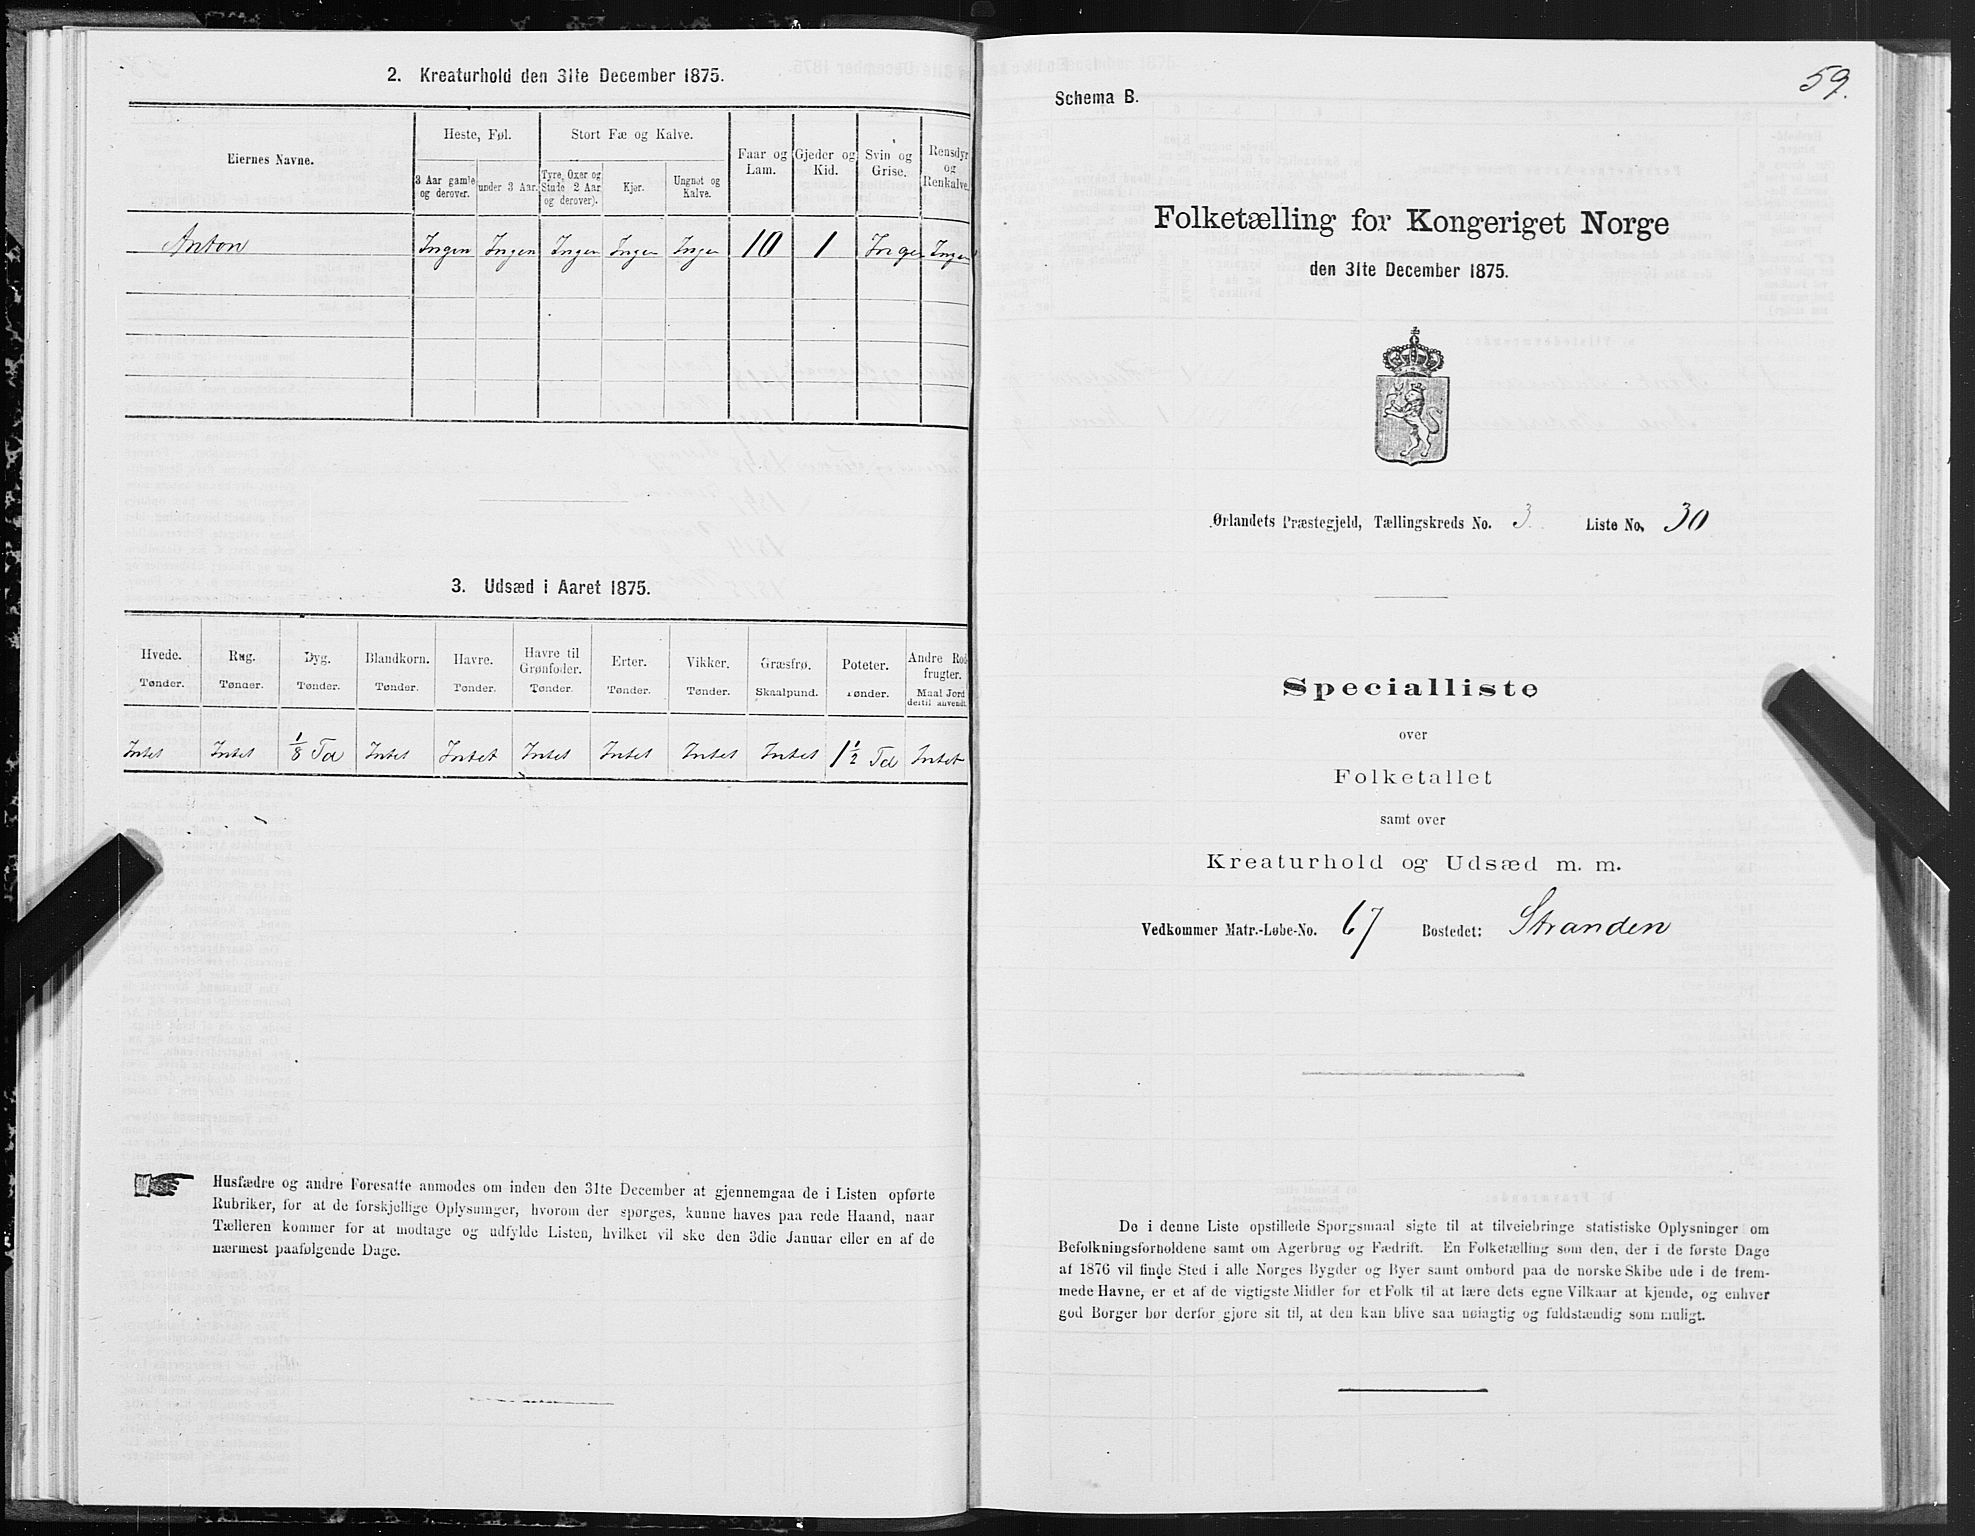 2. Kreaturhold den 31te December 1875.
Eiernes Navne.
Heste, Føl.
Stort Fæ og Kalve.
Faar og Lam.
Gjeder og Kid.
Svin og Grise.
Rensdyr og Renkalve.
3 Aar gamle og derover.
under 3 Aar.
Tyre, Oxer og Stude 2 Aar og derover).
Kjør.
Ungnøt og Kalve.
Anton Ingen Ingen Ingen Ingen Ingen 10 1 Ingen Ingen
3. Udsæd i Aaret 1875.
Hvede. Rug. Byg. Blandkorn. Havre. Havre til Grønfoder. Erter. Vikker. Græsfrø. Poteter. Andre Rodfrugter.
Tønder. Tønder. Tønder. Tønder. Tønder. Tønder. Tønder. Tønder. Skaalpund. Tønder. Maal Jord dertil anvendt
Intet Intet 1/8 Td Intet Intet Intet Intet Intet Intet 1 1/2 Td Intet
Husfædre og andre Foresatte anmodes om inden den 31te December at gjennemgaa de i Listen opførte
Rubriker, for at de forskjellige Oplysninger, hvorom der spørges, kunne haves paa rede Haand, naar
Tælleren kommer for at modtage og udfylde Listen, hvilket vil ske den 3die Januar eller en af de
nærmest paafølgende Dage.
59.
Schema B.
Folketælling for Kongeriget Norge
den 31te December 1875.
Ørlandets Præstegjeld, Tællingskreds No. 3. Liste No. 30
Specialliste
over
Folketallet
samt over
Kreaturhold og Udsæd m. m.
Vedkommer Matr.-Løbe-No. 67 Bostedet: Stranden
De i denne Liste opstillede Spørgsmaal sigte til at tilveiebringe statistiske Oplysninger om
Befolkningsforholdene samt om Agerbrug og Fædrift. En Folketælling som den, der i de første Dage
af 1876 vil finde Sted i alle Norges Bygder og Byer samt ombord paa de norske Skibe ude i de frem-
mede Havne, er et af de vigtigste Midler for et Folk til at lære dets egne Vilkaar at kjende, og enhver
god Borger bør derfor gjøre sit til, at den kan blive saa nøiagtig og fuldstændig som muligt.